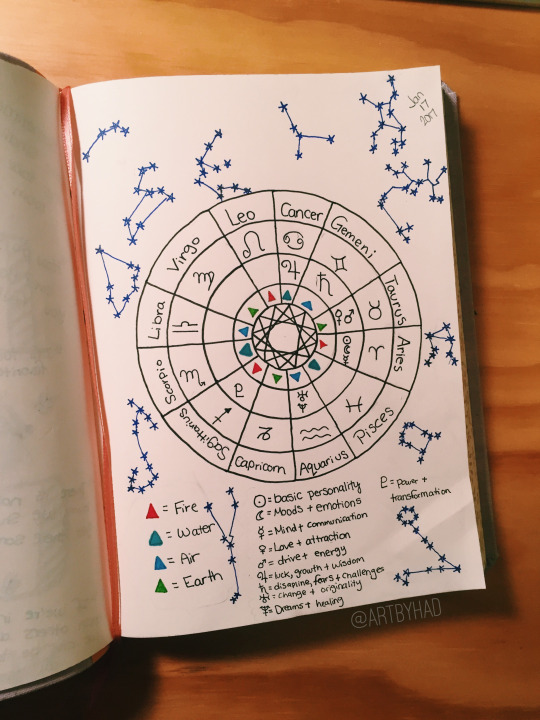 Jan
17
2017
Leo
Cancer
Gemeni
Virgo
Taurus
Libra
Aries
Scorpio
Pisces
Sagittarius
Capricorn
Aquarius
▲ = Fire
= Water
▲ = Air
▲ = Earth
☉ = basic personality
☾ = Moods + emotions
☿ = Mind + communication
♀ = Love + attraction
♂ = drive + energy
♃ = luck, growth + wisdom
♄ = disapline, fears + challenges
♅ = change + originality
♆ = Dreams + healing
♇ = power +
transformation
@ARTBYHAD